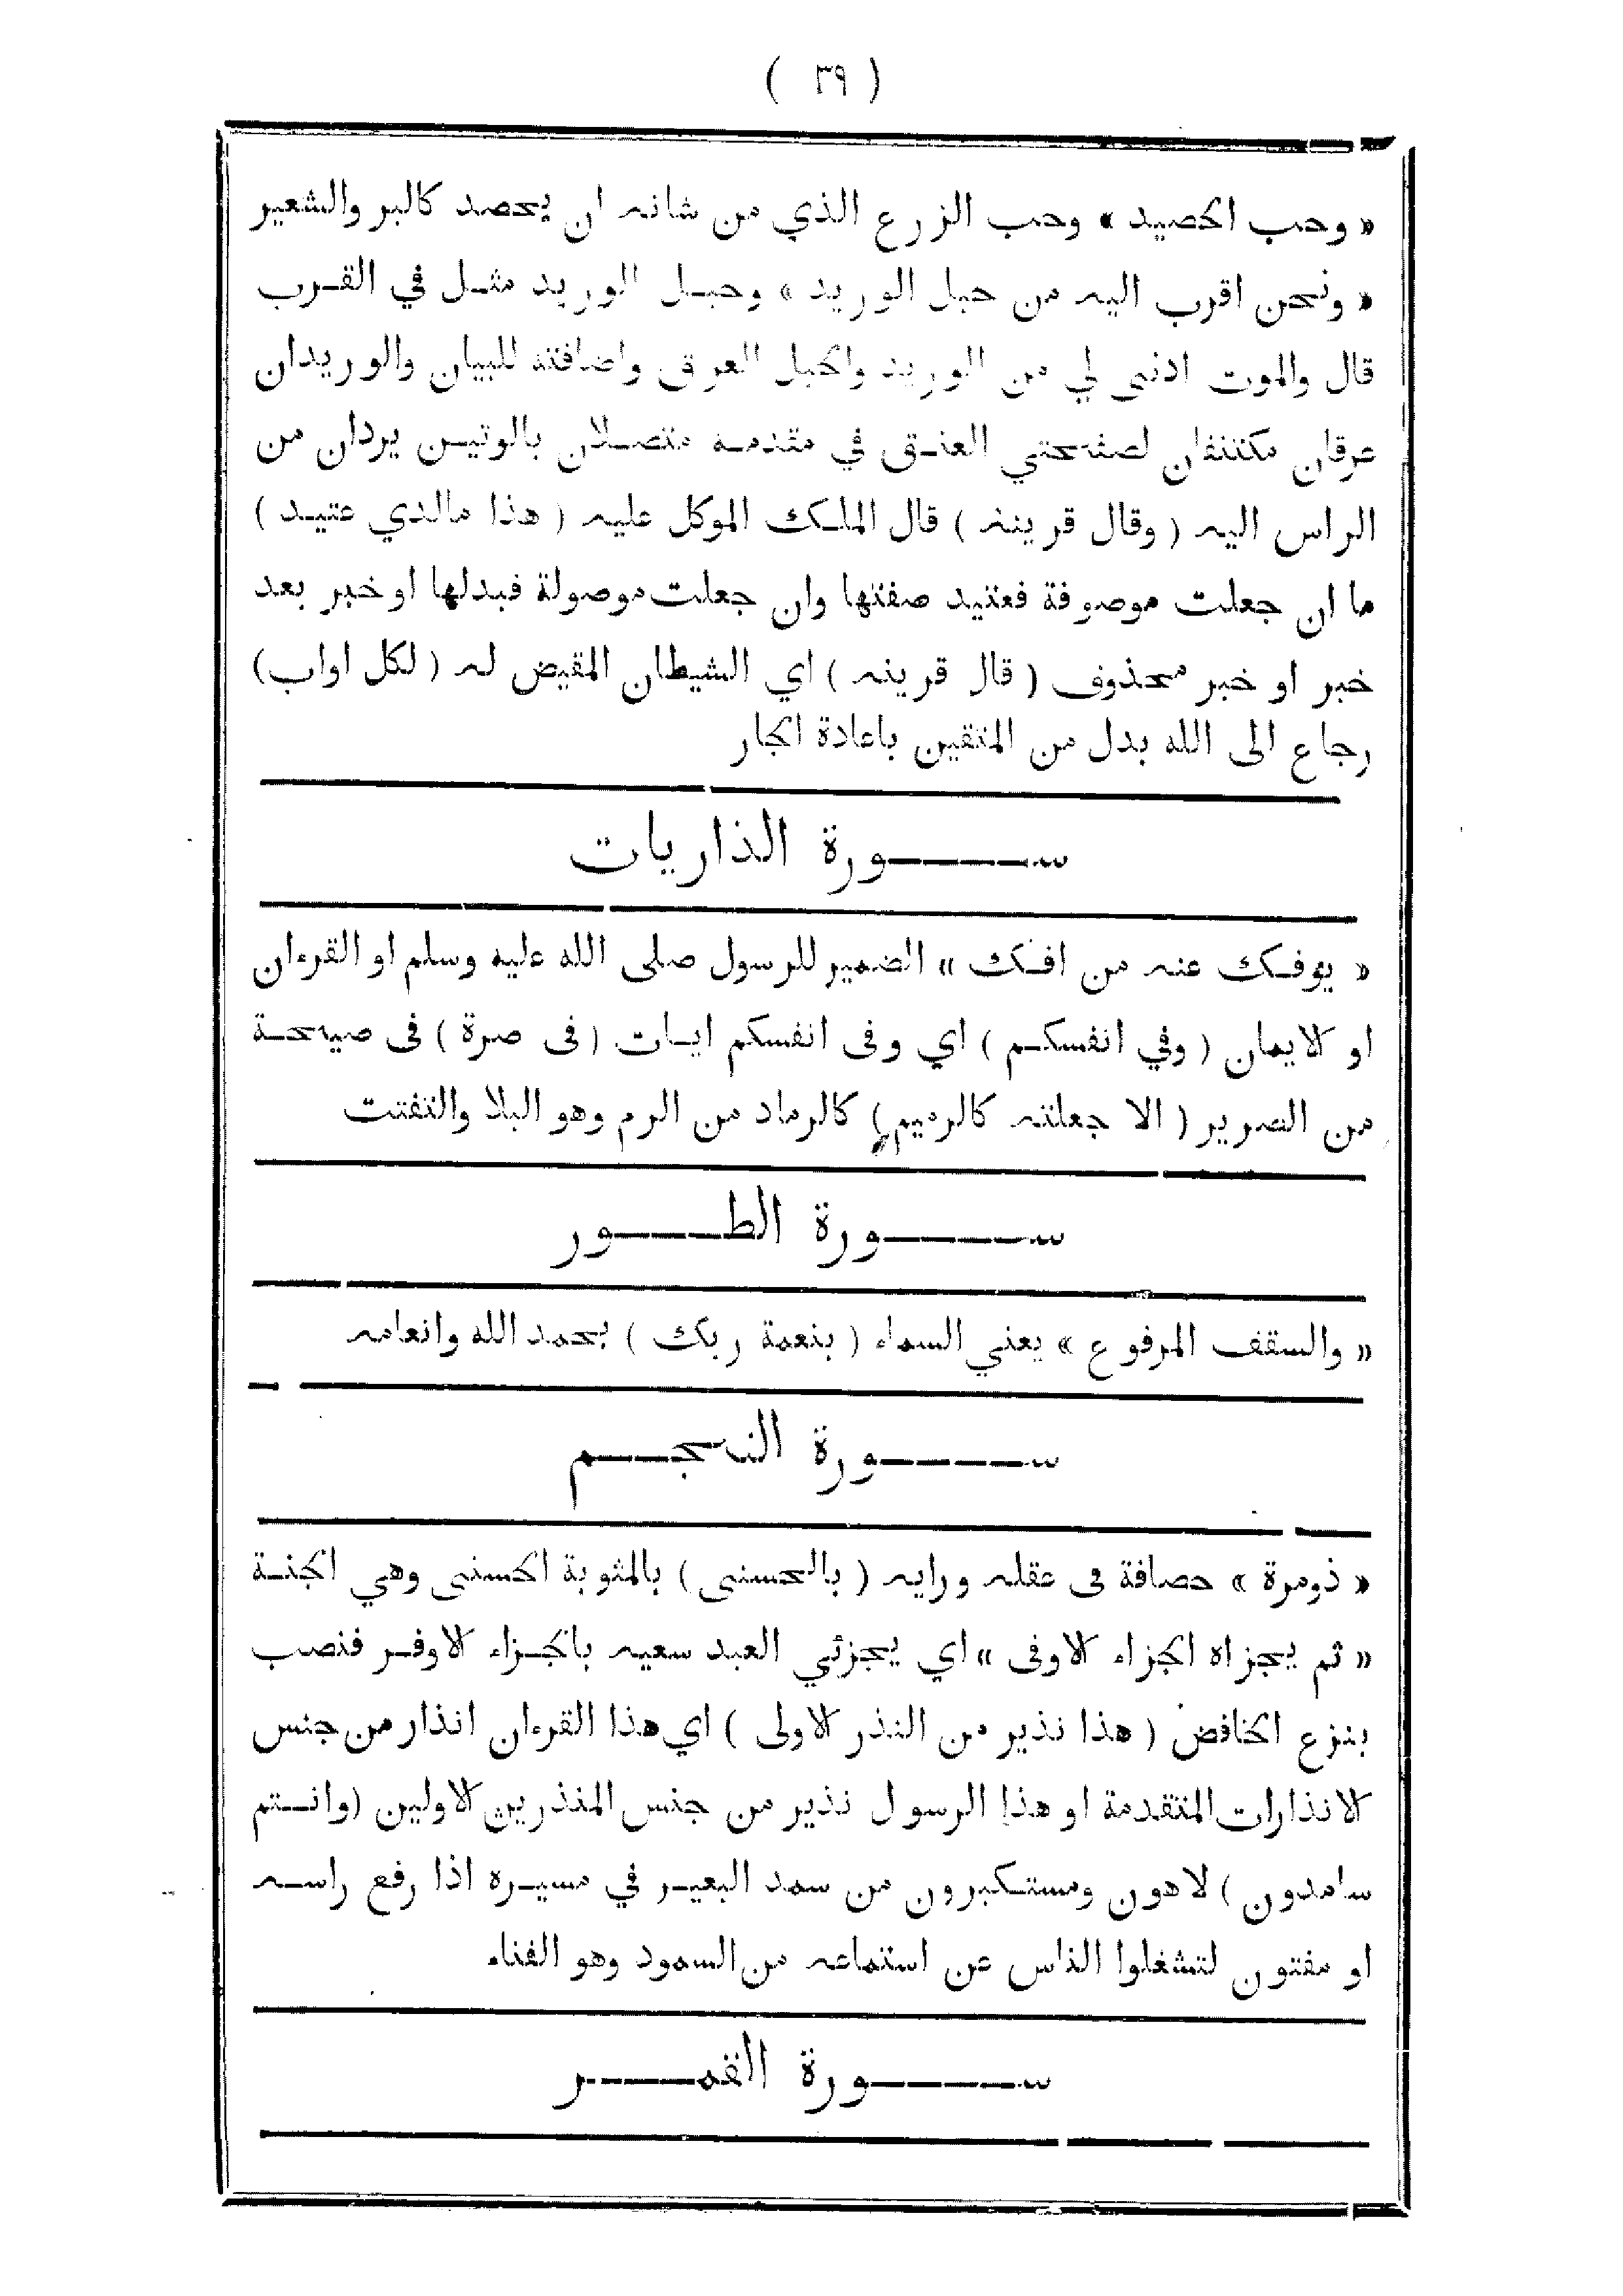 ( ٣٩ )
« وحب الحصيد » وحب الزرع الذي من شانه ان يحصد كالبر والشعير
« ونحن اقرب اليه من حبل الوريد » وحبل الوريد مثل في القرب
قال والموت ادنى لي من الوريد والحبل العرق واضافته للبيان والوريدان
عرقان مكتنفان لصفحتي العنق في مقدمه متصلان بالوتين يردان من
الراس اليه ( وقال قرينه ) قال الملك الموكل عليه ( هذا مالدي عتيد )
ما ان جعلت موصوفة فعتيد صفتها وان جعلت موصولة فبدلها او خبر بعد
خبر او خبر محذوف ( قال قرينه ) اي الشيطان المقيض له ( لكل اواب )
رجاع الى الله بدل من المتقين باعادة الجار
سورة الذاريات
« يوفك عنه من افك » الضمير للرسول صلى الله عليه وسلم او القرءان
او الايمان ( وفي انفسكم ) اي وفى انفسكم ايات ( فى صرة ) فى صيحة
من الصرير ( الا جعلته كالرميم ) كالرماد من الرم وهو البلا والتفتت
سورة الطور
« والسقف المرفوع » يعني السماء ( بنعمة ربك ) بحمد الله وانعامه
سورة النجم
« ذومرة » حصافة فى عقله ورايه ( بالحسنى ) بالمثوبة الحسنى وهي الجنة
« ثم يجزاه الجزاء الاوفى » اي يجزئي العبد سعيه بالجزاء الاوفر فنصب
بنزع الخافض ( هذا نذير من النذر الاولى ) اي هذا القرءان انذار من جنس
الانذارات المتقدمة او هذا الرسول نذير من جنس المنذرين الاولين ( وانتم
سامدون ) لاهون ومستكبرون من سمد البعير في مسيره اذا رفع راسه
او مفتون لتشغلوا الناس عن استماعه من السمود وهو الفناء
سورة القمر